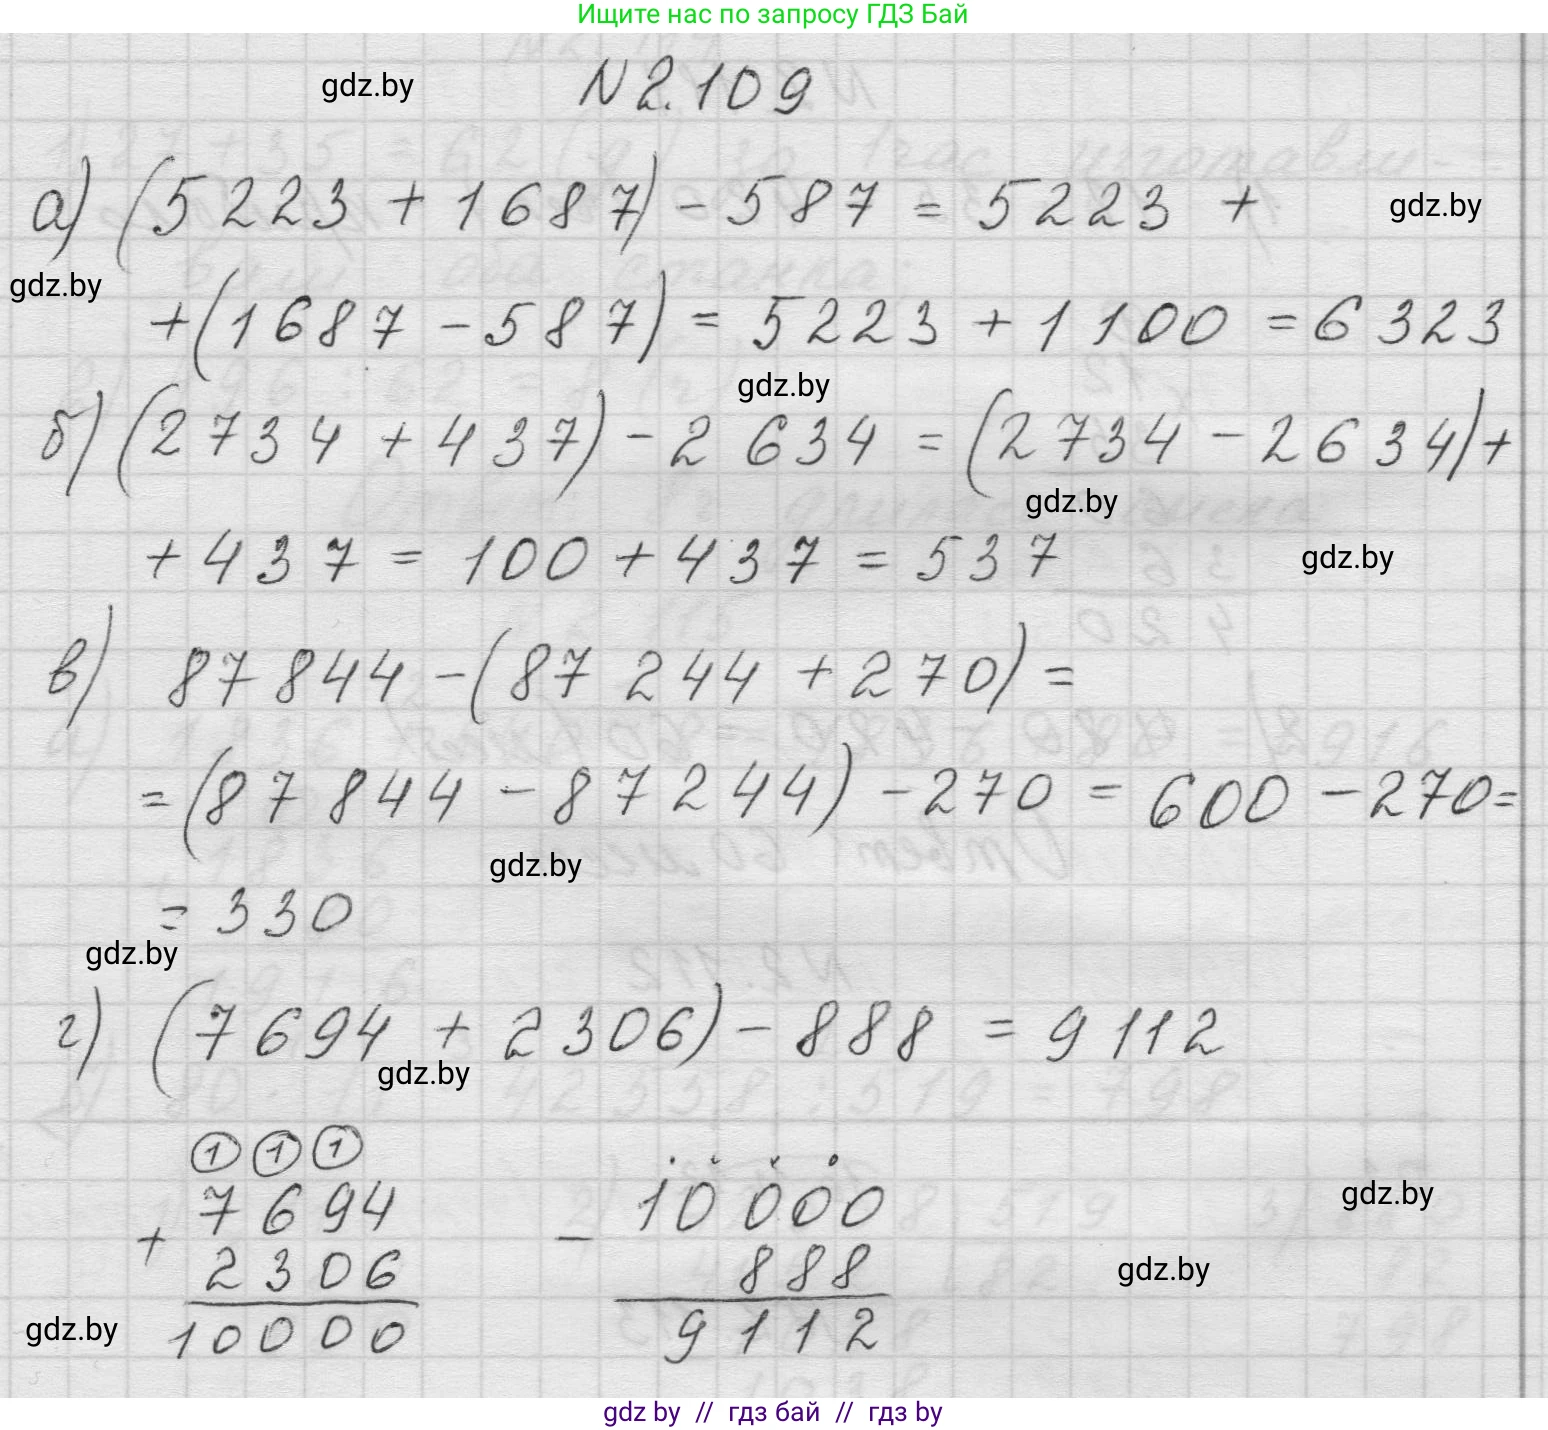 Ищите нас по запросу ГДЗ Бай
gdz.by
N 2.109
а) (5223 + 1687) - 587 = 5223 +
gdz.by
gdz.by
+ (1687 - 587) = 5223 + 1100 = 6323
gdz.by
б) (2734 + 437) - 2634 = (2734 - 2634) +
gdz.by
+ 437 = 100 + 437 = 537
gdz.by
в) 87844 - (87244 + 270) =
= (87844 - 87244) - 270 = 600 - 270 =
gdz.by
= 330
gdz.by
г) (7694 + 2306) - 888 = 9112
gdz.by
1 1 1
7694
+
2306
10000
10000
-
888
9112
gdz.by
gdz.by
gdz.by
gdz by // гдз бай // гдз by